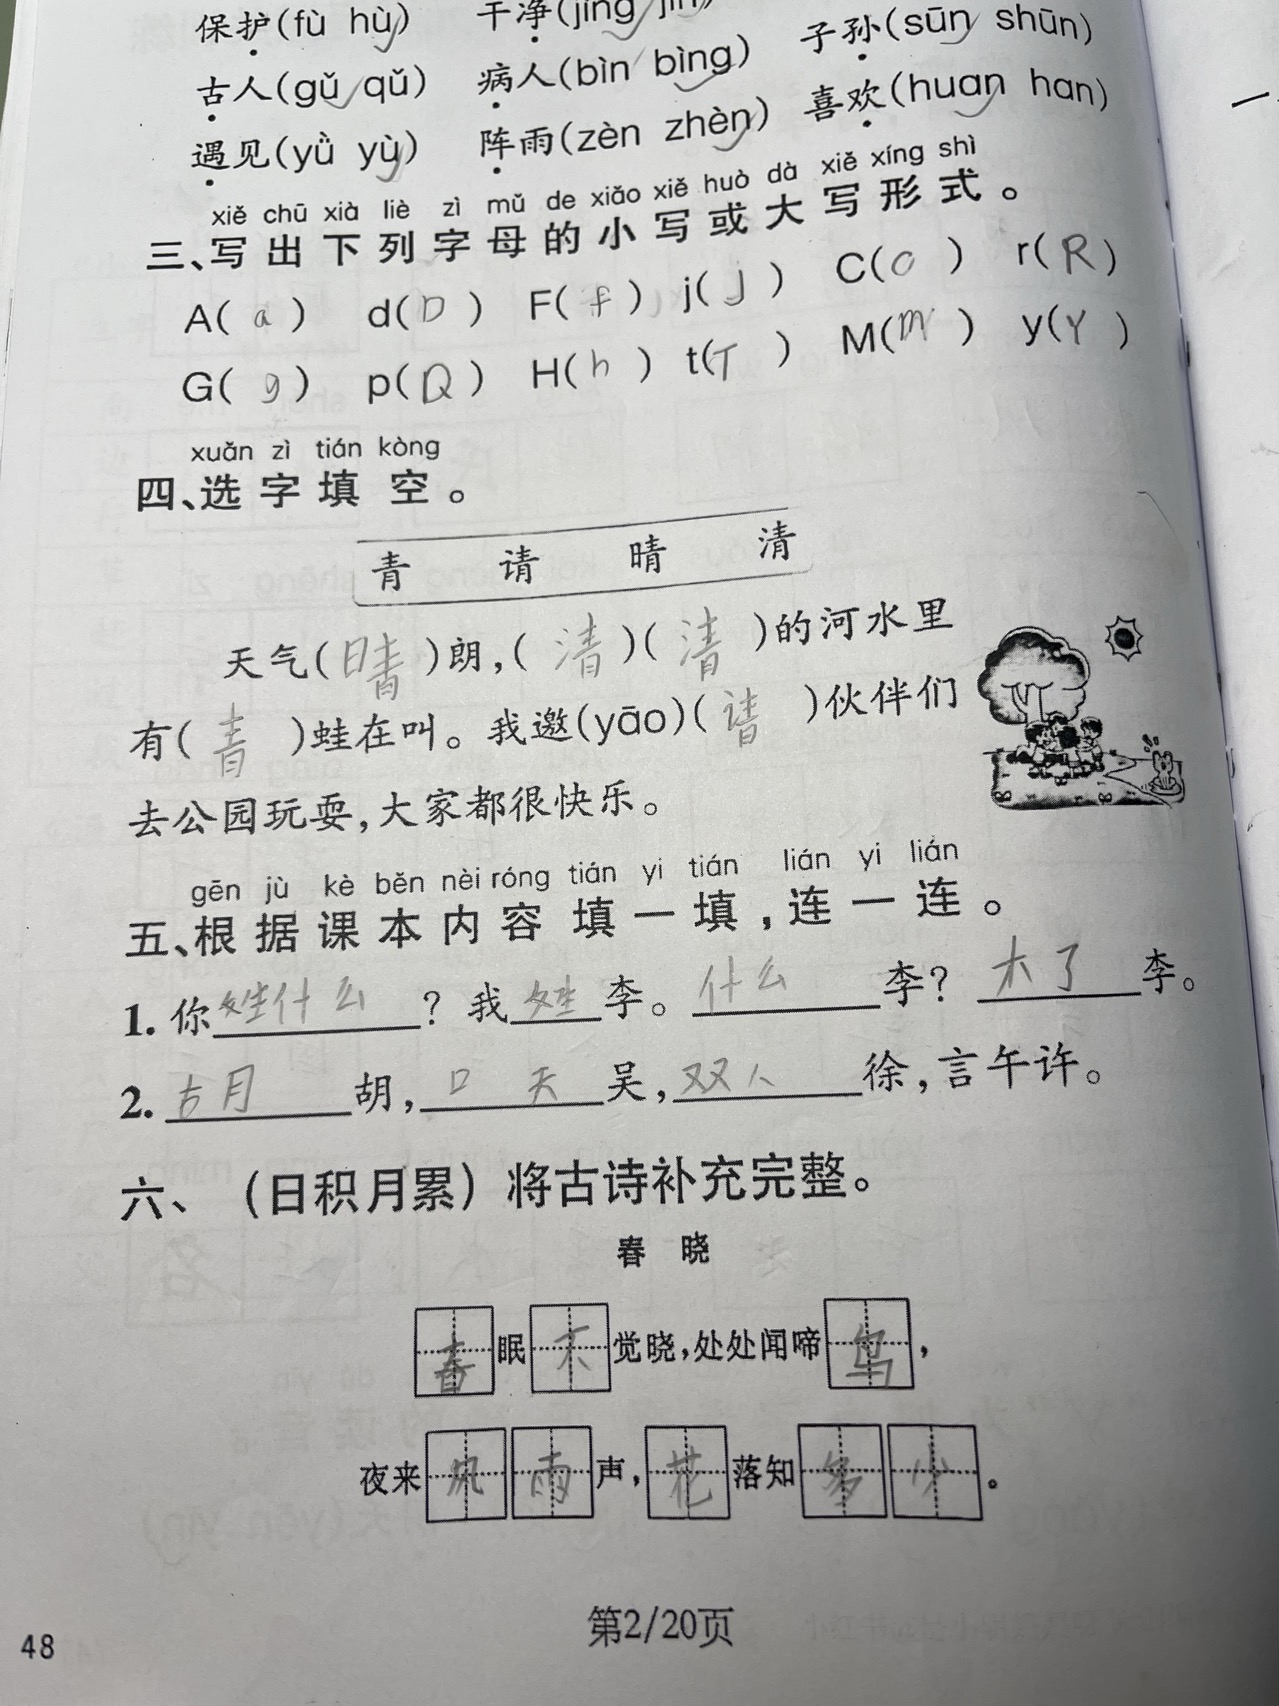 保护(fù hù) 干净(jìng jìn)
子孙(sūn shūn)
古人(gǔ qǔ) 病人(bìn bìng)
喜欢(huan han)
遇见(yǜ yù) 阵雨(zèn zhèn)
xiě chū xià liè zì mǔ de xiǎo xiě huò dà xiě xíng shì
三、写出下列字母的小写或大写形式。
A( a ) d( D ) F( f ) j( J ) C( c ) r( R )
G( g ) p( Q ) H( h ) t( T ) M( m ) y( Y )
xuǎn zì tián kòng
四、选字填空。
青 请 晴 清
天气(晴)朗,(清)(清)的河水里
有(青)蛙在叫。我邀(yāo)(请)伙伴们
去公园玩耍,大家都很快乐。
gēn jù kè běn nèi róng tián yi tián lián yi lián
五、根据课本内容填一填,连一连。
1. 你姓什么?我姓李。什么李?木了李。
2. 古月胡,口天吴,双人徐,言午许。
六、(日积月累)将古诗补充完整。
春 晓
春眠不觉晓,处处闻啼鸟,
夜来风雨声,花落知多少。
第2/20页
48